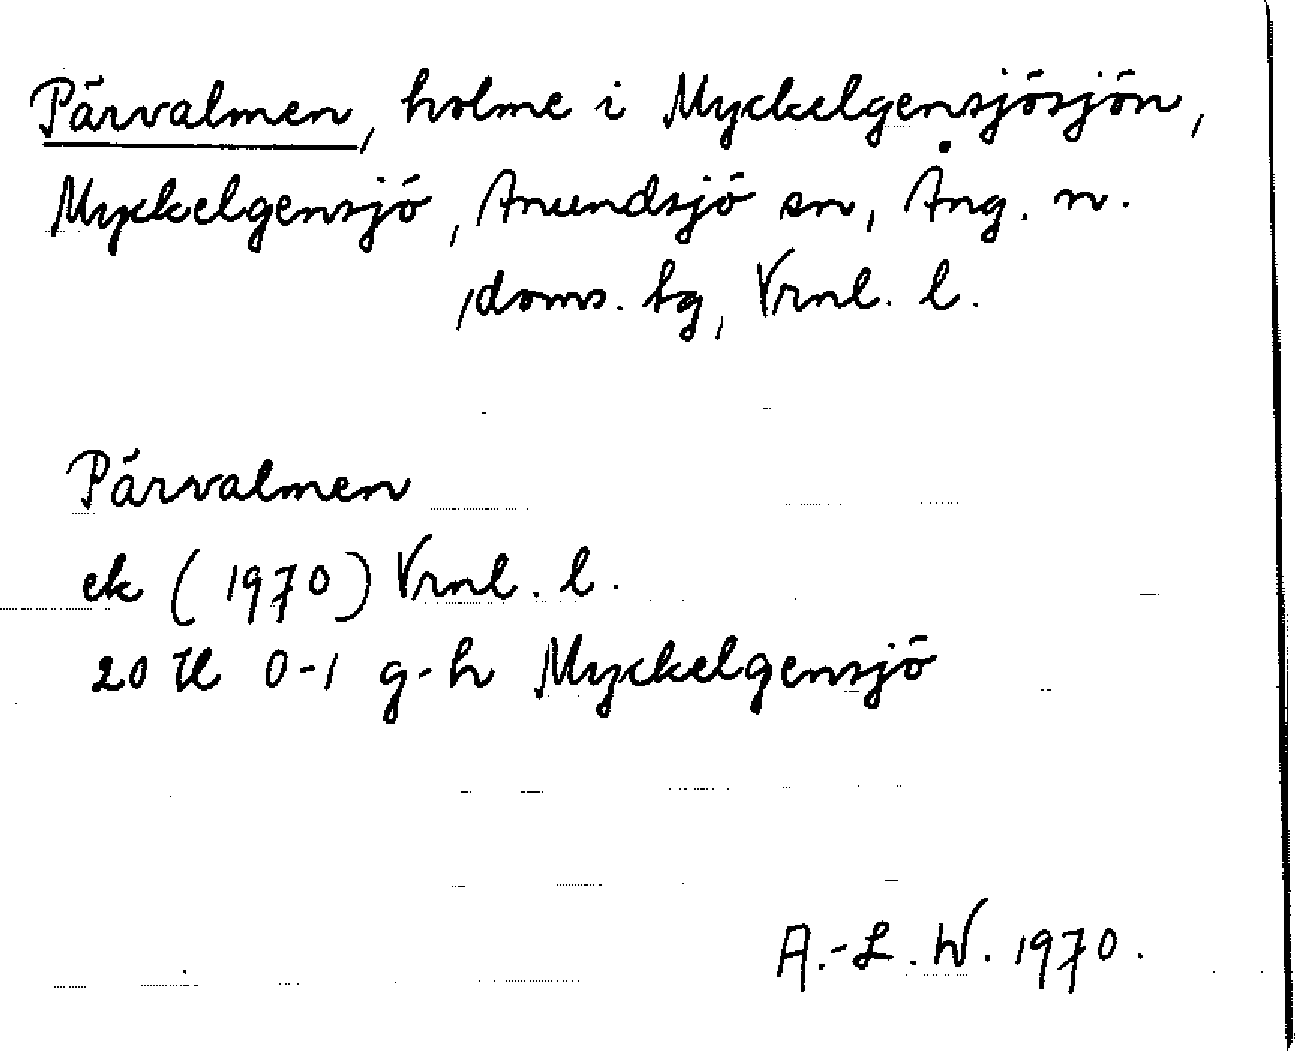 Pärvalmen, holme i Myckelgensjösjön,
Myckelgensjö, Anundsjö sn, Ång. n.
doms. tg, Vrnl. l.
Pärvalmen
ek (1970) Vrnl. l.
20 H 0-1 g-h Myckelgensjö
A.-L. W. 1970.